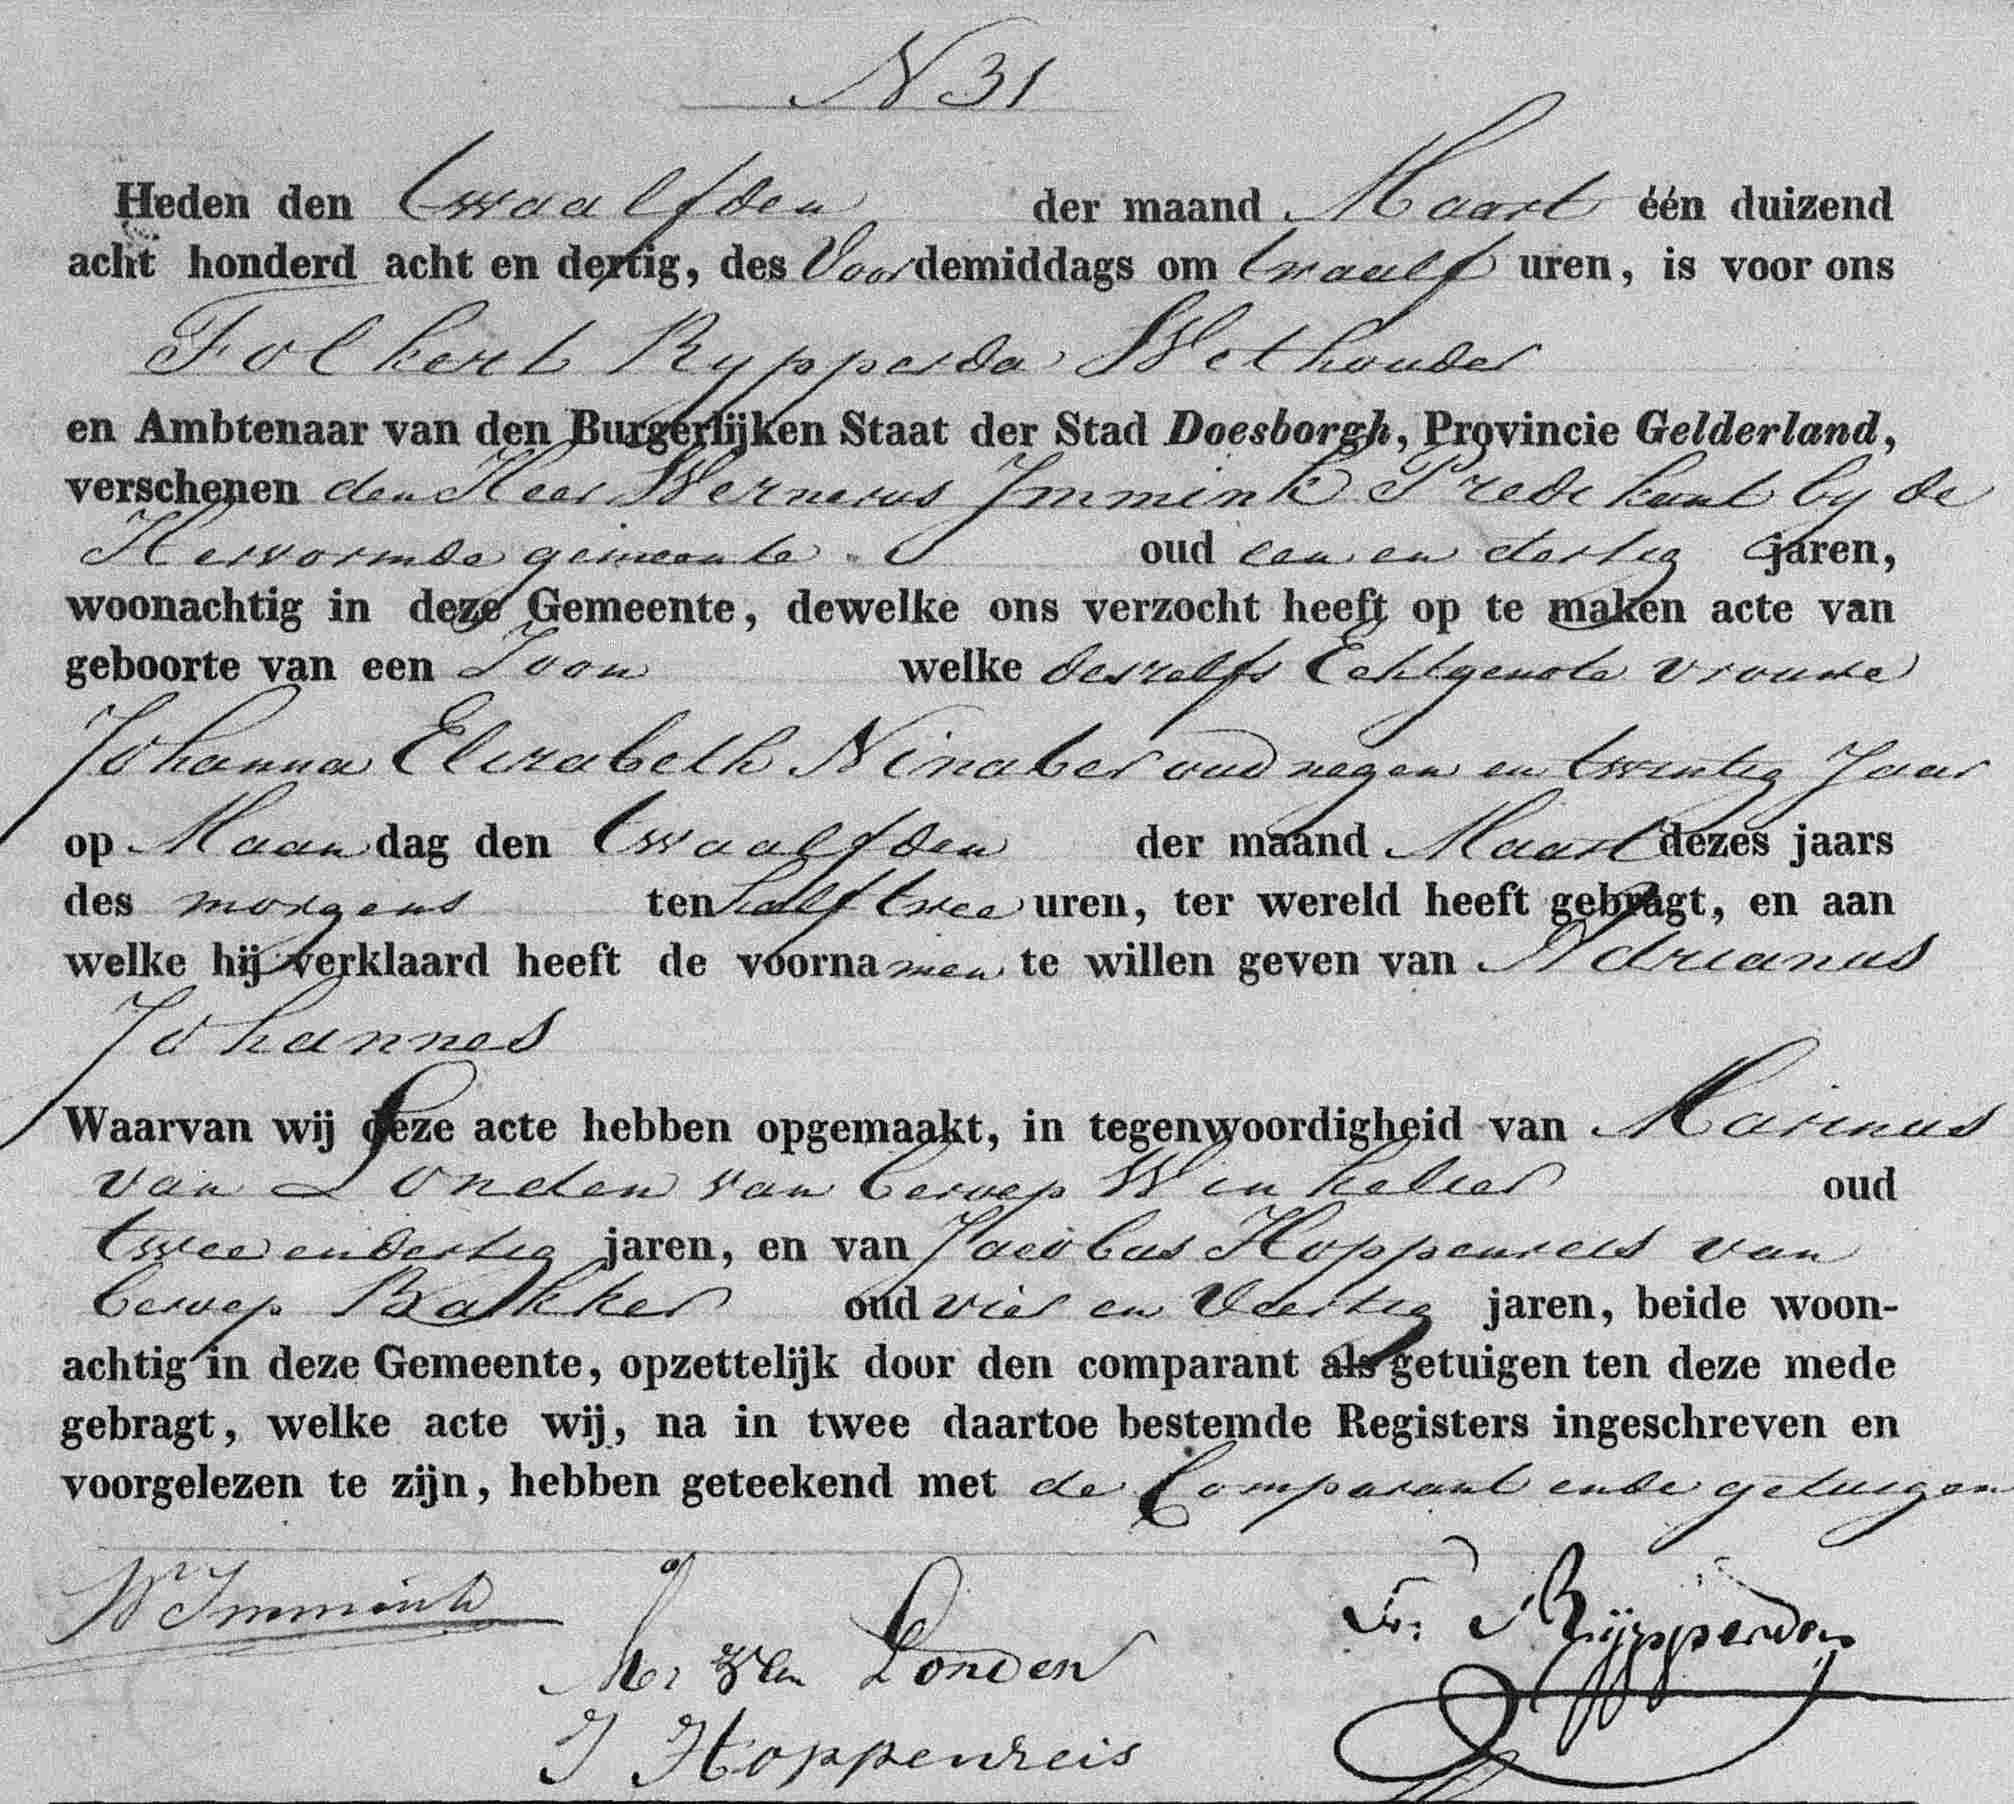 N 31
Heden den twaalfden der maand Maart één duizend
acht honderd acht en dertig, des Voordemiddags om twaalf uren, is voor ons
Folkert Rypperda Wethouder
en Ambtenaar van den Burgerlijken Staat der Stad Doesborgh, Provincie Gelderland,
verschenen den Heer Wernerus Immink Predikant by de
Hervormde gemeente oud een en dertig jaren,
woonachtig in deze Gemeente, dewelke ons verzocht heeft op te maken acte van
geboorte van een Zoon welke deszelfs Echtgenote vrouwe
Johanna Elizabeth Ninaber oud negen en twintig Jaar
op Maandag den twaalfden der maand Maart dezes jaars
des morgens ten half twee uren, ter wereld heeft gebragt, en aan
welke hij verklaard heeft de voornamen te willen geven van Adrianus
Johannes
Waarvan wij deze acte hebben opgemaakt, in tegenwoordigheid van Marinus
van Londen van beroep Winkelier oud
twee en dertig jaren, en van Jacobus Hoppenreis van
beroep Bakker oud vier en Veertig jaren, beide woon-
achtig in deze Gemeente, opzettelijk door den comparant als getuigen ten deze mede
gebragt, welke acte wij, na in twee daartoe bestemde Registers ingeschreven en
voorgelezen te zijn, hebben geteekend met de Comparant en de getuigen
W Immink
M: van Londen
Fr: Rijpperda
J Hoppenreis